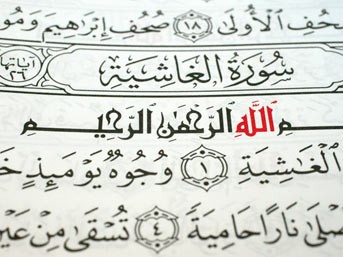 صُحُفِ ٱلْأُولَىٰ ١٨ صُحُفِ إِبْرَٰهِيمَ وَمُو
آياتها ٢٦ سُورَةُ الغَاشِيَة
ـمِ ٱللَّهِ ٱلرَّحْمَٰنِ ٱلرَّحِيمِ
ٱلْغَٰشِيَةِ ١ وُجُوهٌ يَوْمَئِذٍ خَ
صْلَىٰ نَارًا حَامِيَةً ٤ تُسْقَىٰ مِنْ عَيْنٍ